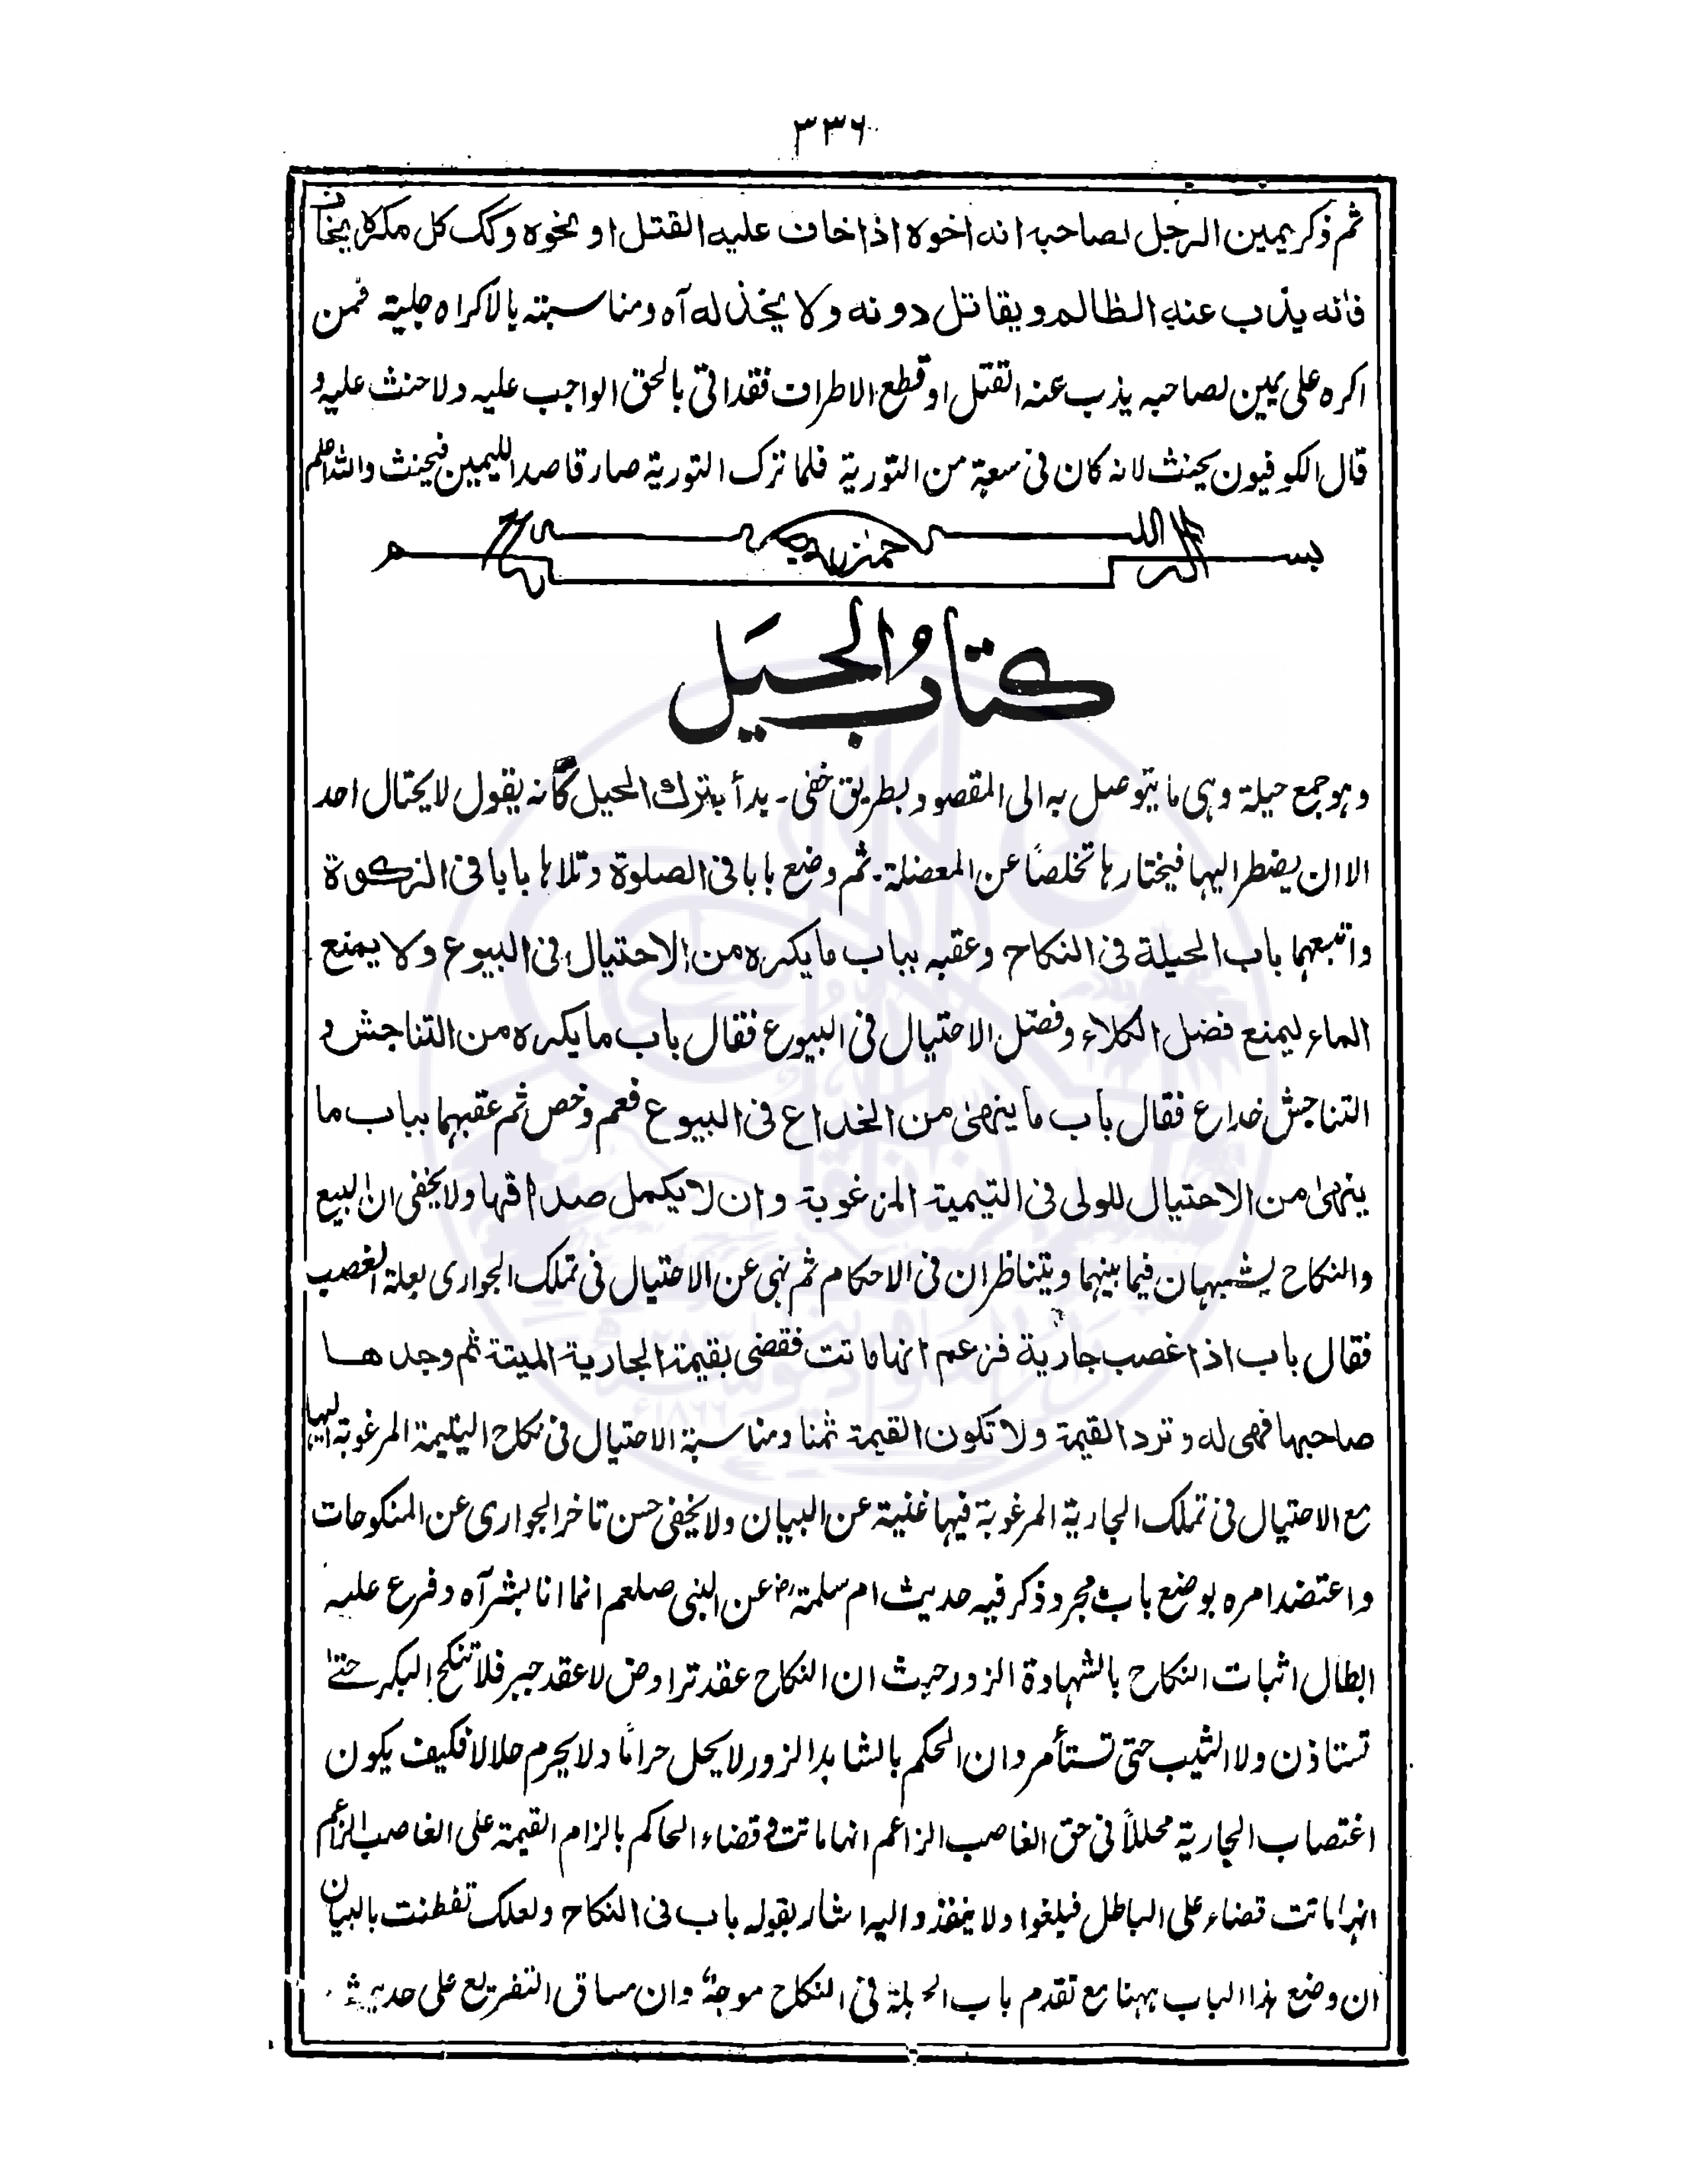 ٣٣٦
ثم ذكر يمين الرجل لصاحبه انه اخوه اذا خاف عليه القتل او نحوه وكك كل مكره يخاف
فانه يذب عنه الظالم ويقاتل دونه ولا يخذله آه ومناسبته بالاكراه جلية فمن
اكره على يمين لصاحبه يذب عنه القتل او قطع الاطراف فقد اتى بالحق الواجب عليه ولا حنث عليه و
قال الكوفيون يحنث لانه كان فى سعة من التورية فلما ترك التورية صار قاصدا لليمين فيحنث والله اعلم
بسم الله الرحمن الرحيم
كتاب الحيل
وهو جمع حيلة وهى ما يتوصل به الى المقصود بطريق خفى ۔ بدأ بترك الحيل كأنه يقول لا يحتال احد
الا ان يضطر اليها فيختارها تخلصاً عن المعضلة ۔ ثم وضع بابا فى الصلوة وتلاها بابا فى الزكوة
واتبعهما باب الحيلة فى النكاح وعقبه بباب ما يكره من الاحتيال فى البيوع ولا يمنع
الماء ليمنع فضل الكلاء وفصّل الاحتيال فى البيوع فقال باب ما يكره من التناجش و
التناجش خداع فقال باب ما ينهىٰ من الخداع فى البيوع فعم وخص ثم عقبهما بباب ما
ينهىٰ من الاحتيال للولى فى اليتيمة المرغوبة وان لا يكمل صداقها ولا يخفى ان البيع
والنكاح يشبهان فيما بينهما ويتناظران فى الاحكام ثم نهى عن الاحتيال فى تملك الجوارى بعلة الغصب
فقال باب اذا غصب جارية فزعم انها ماتت فقضى بقيمة الجارية الميتة ثم وجدها
صاحبها فهى له وترد القيمة ولا تكون القيمة ثمنا ومناسبة الاحتيال فى نكاح اليتيمة المرغوبة اليها
مع الاحتيال فى تملك الجارية المرغوبة فيها غنية عن البيان ولا يخفى حسن تاخر الجوارى عن المنكوحات
واعتضد امره بوضع باب مجرد ذكر فيه حديث ام سلمةرض عن النبى صلعم انما انا بشر آه وفرع عليه
ابطال اثبات النكاح بالشهادة الزور حيث ان النكاح عقد تراوض لا عقد جبر فلا تنكح البكر حتىٰ
تستاذن ولا الثيب حتى تستأمر وان الحكم بالشاهد الزور لا يحل حراماً ولا يحرم حلالا فكيف يكون
اغتصاب الجارية محللاً فى حق الغاصب الزاعم انها ماتت وقضاء الحاكم بالزام القيمة على الغاصب الزاعم
انها ماتت قضاء على الباطل فيلغوا ولا ينفذ واليه اشار بقوله باب فى النكاح ولعلك تفطنت بالبيان
ان وضع هذا الباب ههنا مع تقدم باب الحيلة فى النكاح موجهٌ وان مساق التفريع على حديث